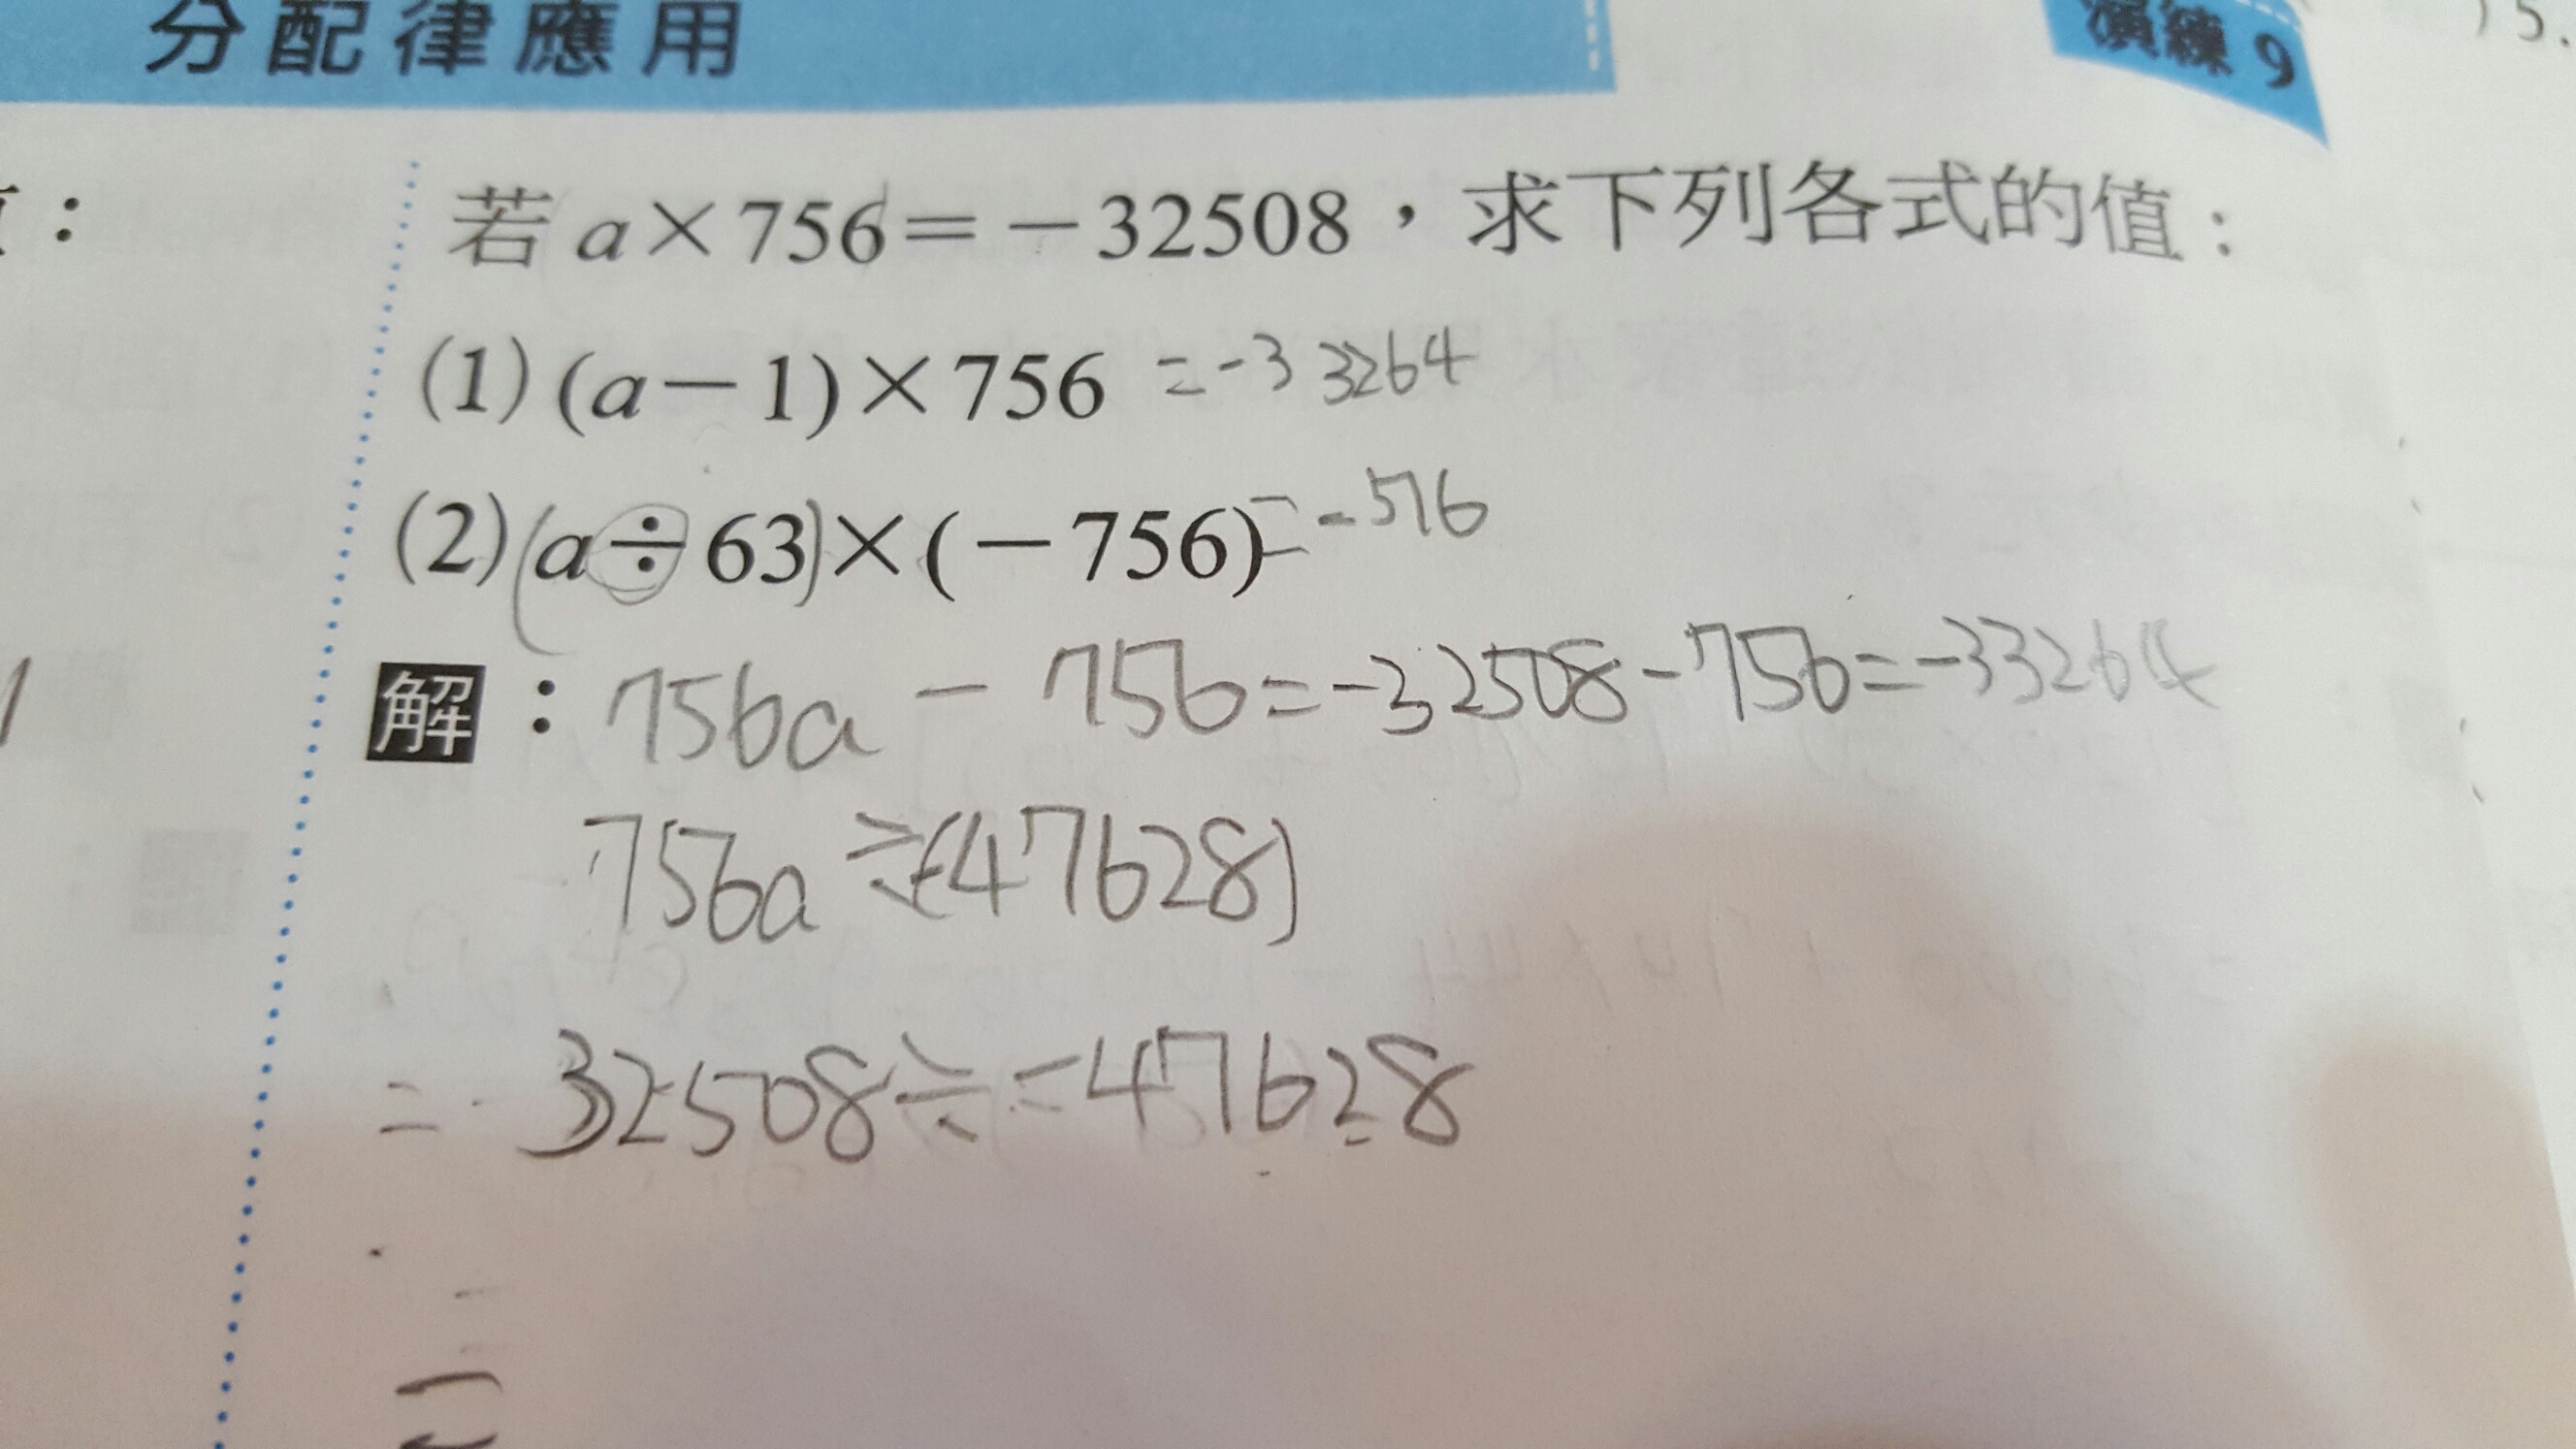 分配律應用
演練 9
)5.
若 a×756=-32508，求下列各式的值：
(1) (a-1)×756 =-33264
(2) (a÷63)×(-756)=-516
解：756a - 756=-32508-756=-33264
756a ÷(-47628)
=-32508÷-47628